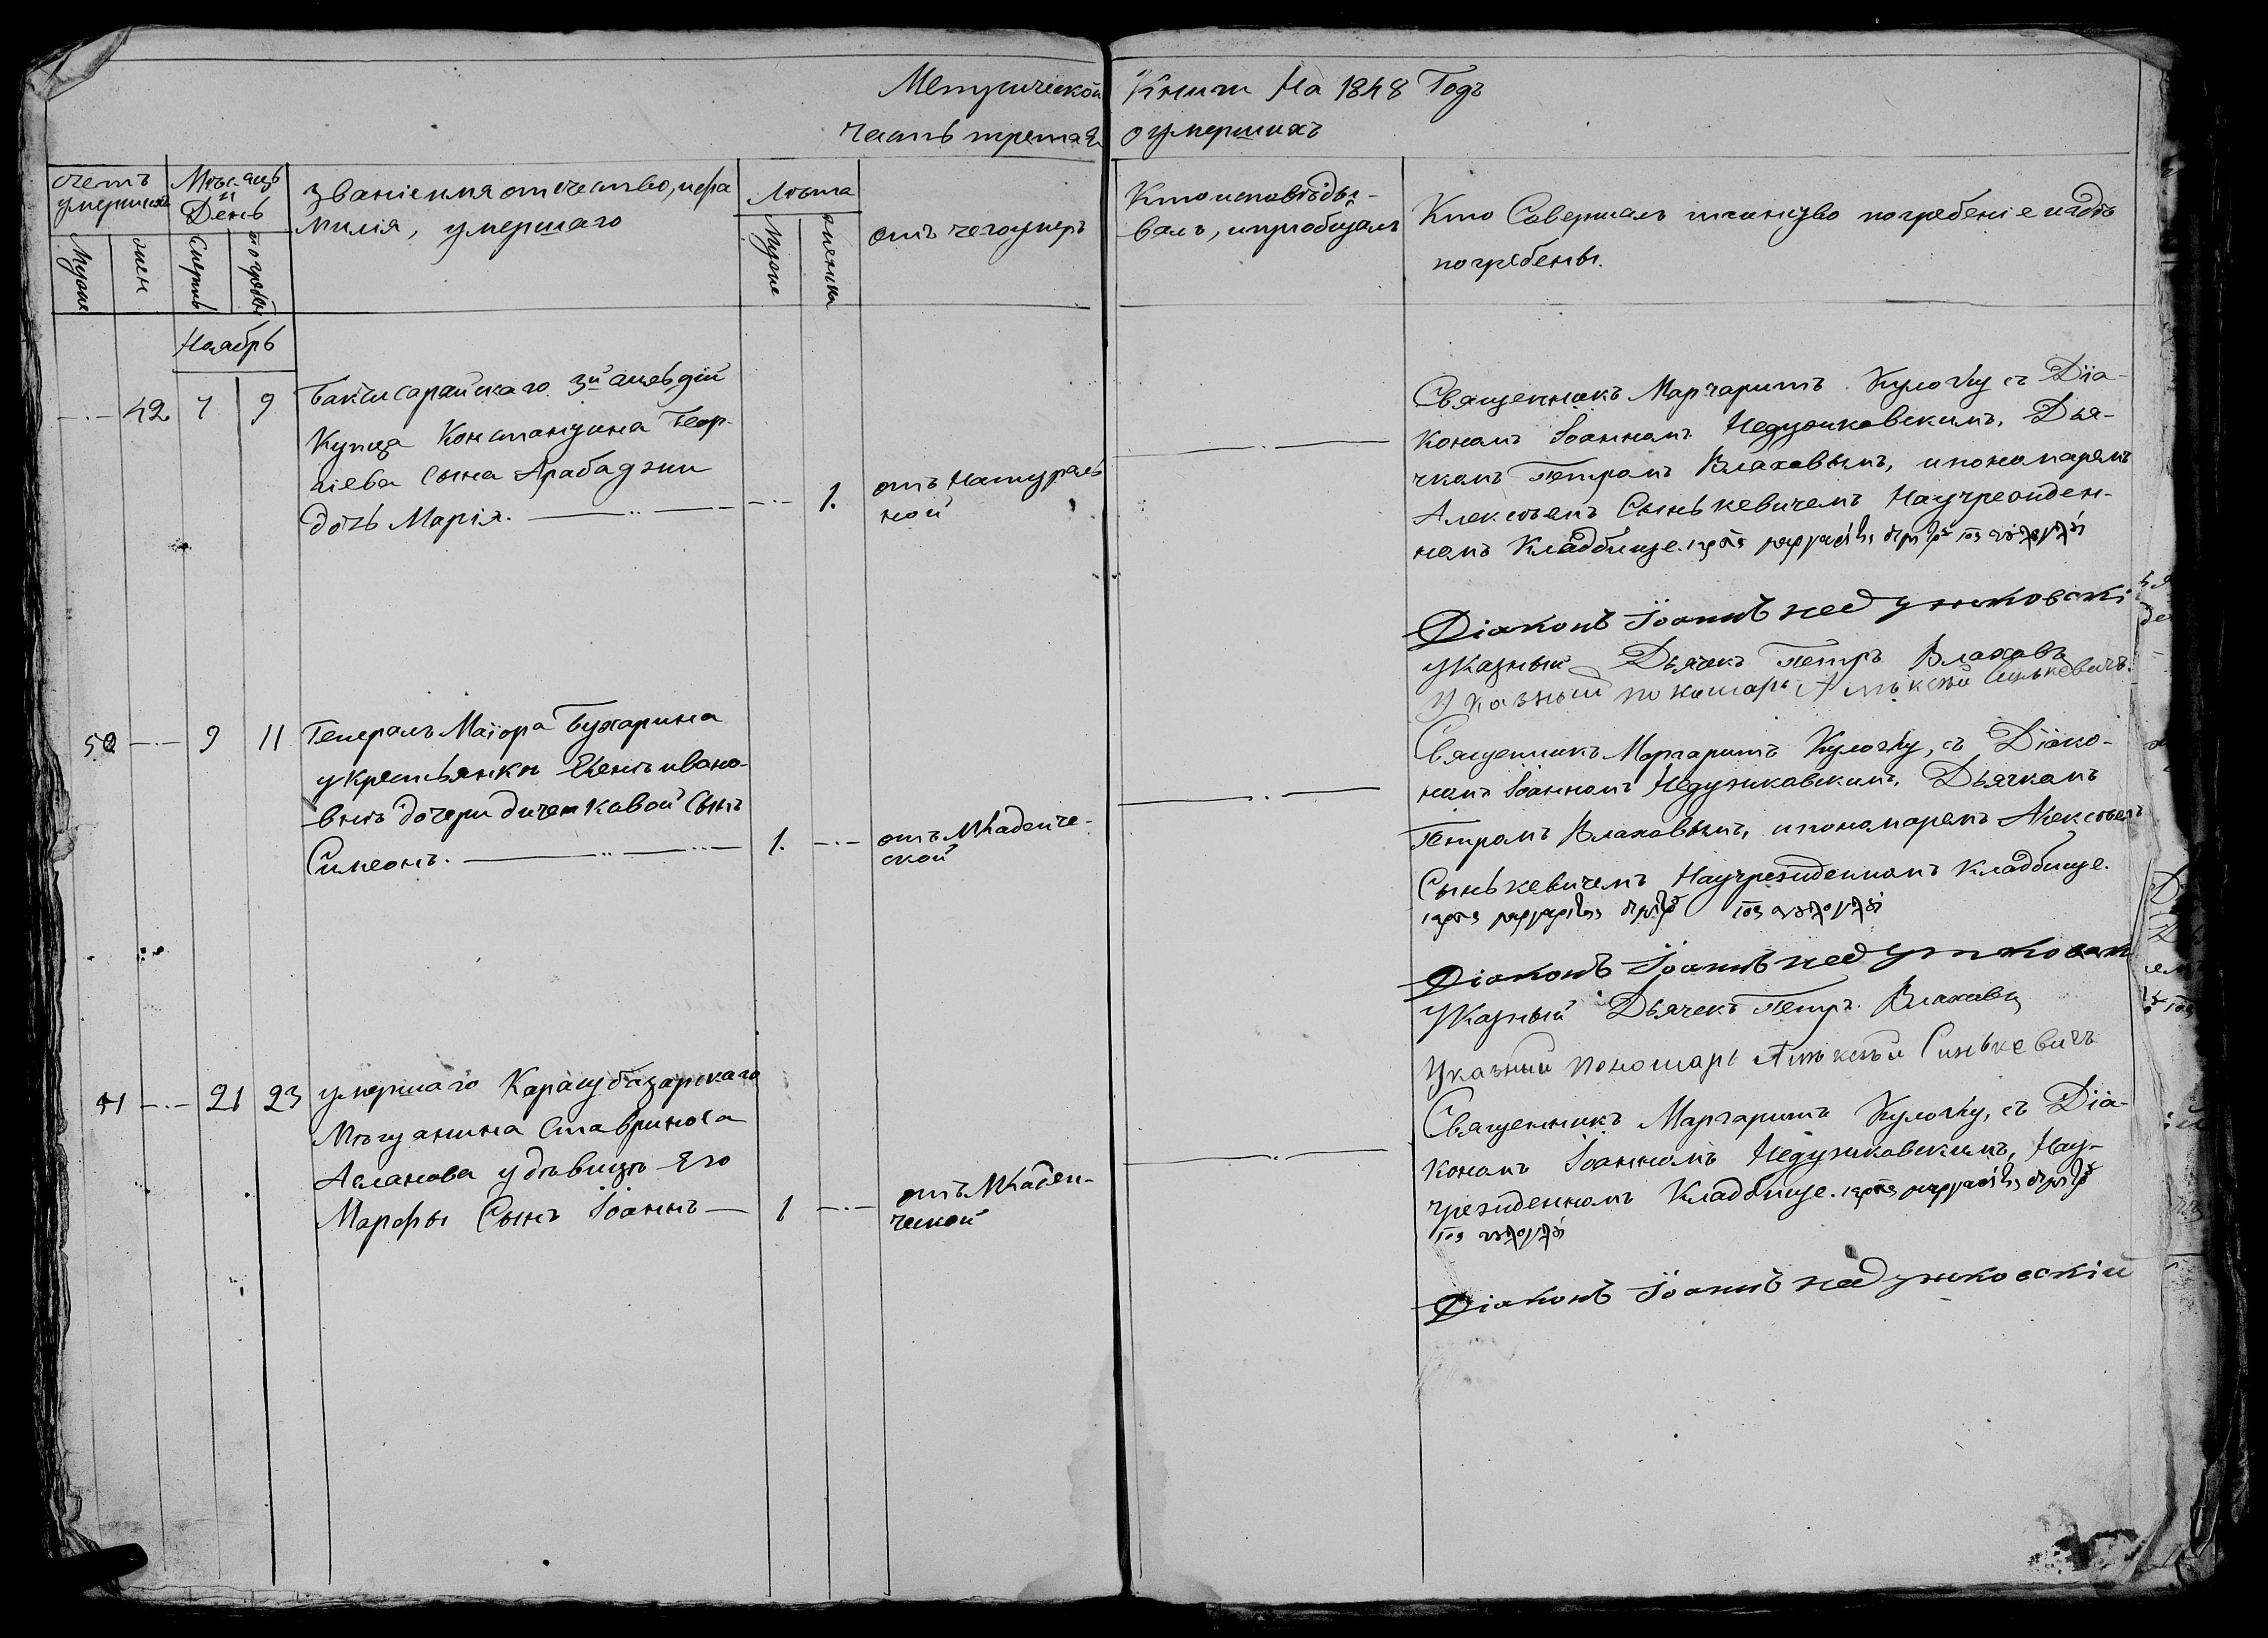 Метрической Книги На 1848 Годъ
часть третая о умершихъ
счетъ умершихъ
Мѣсяцъ и День
званіе имя отчество, и фа
милія, умершаго
Лѣта
отъ чего умеръ
Кто исповѣды-
валъ, и приобщалъ
Кто Совершалъ таинство погребеніе и гдѣ
погребены.
Муже
жен
Смерть
погребе
Муже
женска
Ноябрь
42 7 9 Бакчисарайскаго 3й гильдій
Купца Константина Геор-
гіева Сына Арабаджи
дочь Марія. 1. отъ Натураль
ной
Священникъ Маргаритъ Кулоглу съ Діа-
кономъ Іоанномъ Недужковскимъ, Дья-
чкомъ Петромъ Влаховымъ, и пономаремъ
Алексѣемъ Сынькевичемъ На учрежден-
номъ Кладбище.
Діаконъ Іоаннъ недужковскі
указный Дьячекъ Петръ Влаховъ
Указный пономарь Алѣксѣй Синькевичъ.
50 9 11 Генералъ Маіора Бухарина
у крестьянки Елены ивано-
вны дочери диченковой Сынъ
Симеонъ. 1. отъ Младенче-
ской
Священникъ Маргаритъ Кулоглу, съ Діако-
номъ Іоанномъ Недужковскимъ, Дьячкомъ
Петромъ Влаховымъ, и пономаремъ Алексѣемъ
Сынькевичемъ На учрежденномъ Кладбище.
Діаконъ Іоаннъ недужковски
Указный Дьячекъ Петръ Влаховъ
Указный пономарь Алѣксѣй Синькевичъ
51 21 23 умершаго Карасубазарскаго
Мѣщанина Ставриноса
Асланова у вдѣвицы Его
Марфы Сынъ Іоаннъ 1 отъ Младен-
ческой
Священникъ Маргаритъ Кулоглу, съ Діа-
кономъ Іоанномъ Недужковскимъ, На у-
чрежденномъ Кладбище.
Діаконъ Іоаннъ недужковскій